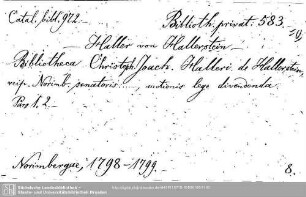 Catal. bibl. 972.
Biblioth. privat. 583.
Haller von Hallerstein
Bibliotheca Christoph. Joach. Halleri de Hallerstein,
reip. Norimb. senatoris ..., auctionis lege divendenda.
Pars 1. 2.
Norimbergae, 1798-1799.
8.
Sächsische Landesbibliothek -
Staats- und Universitätsbibliothek Dresden